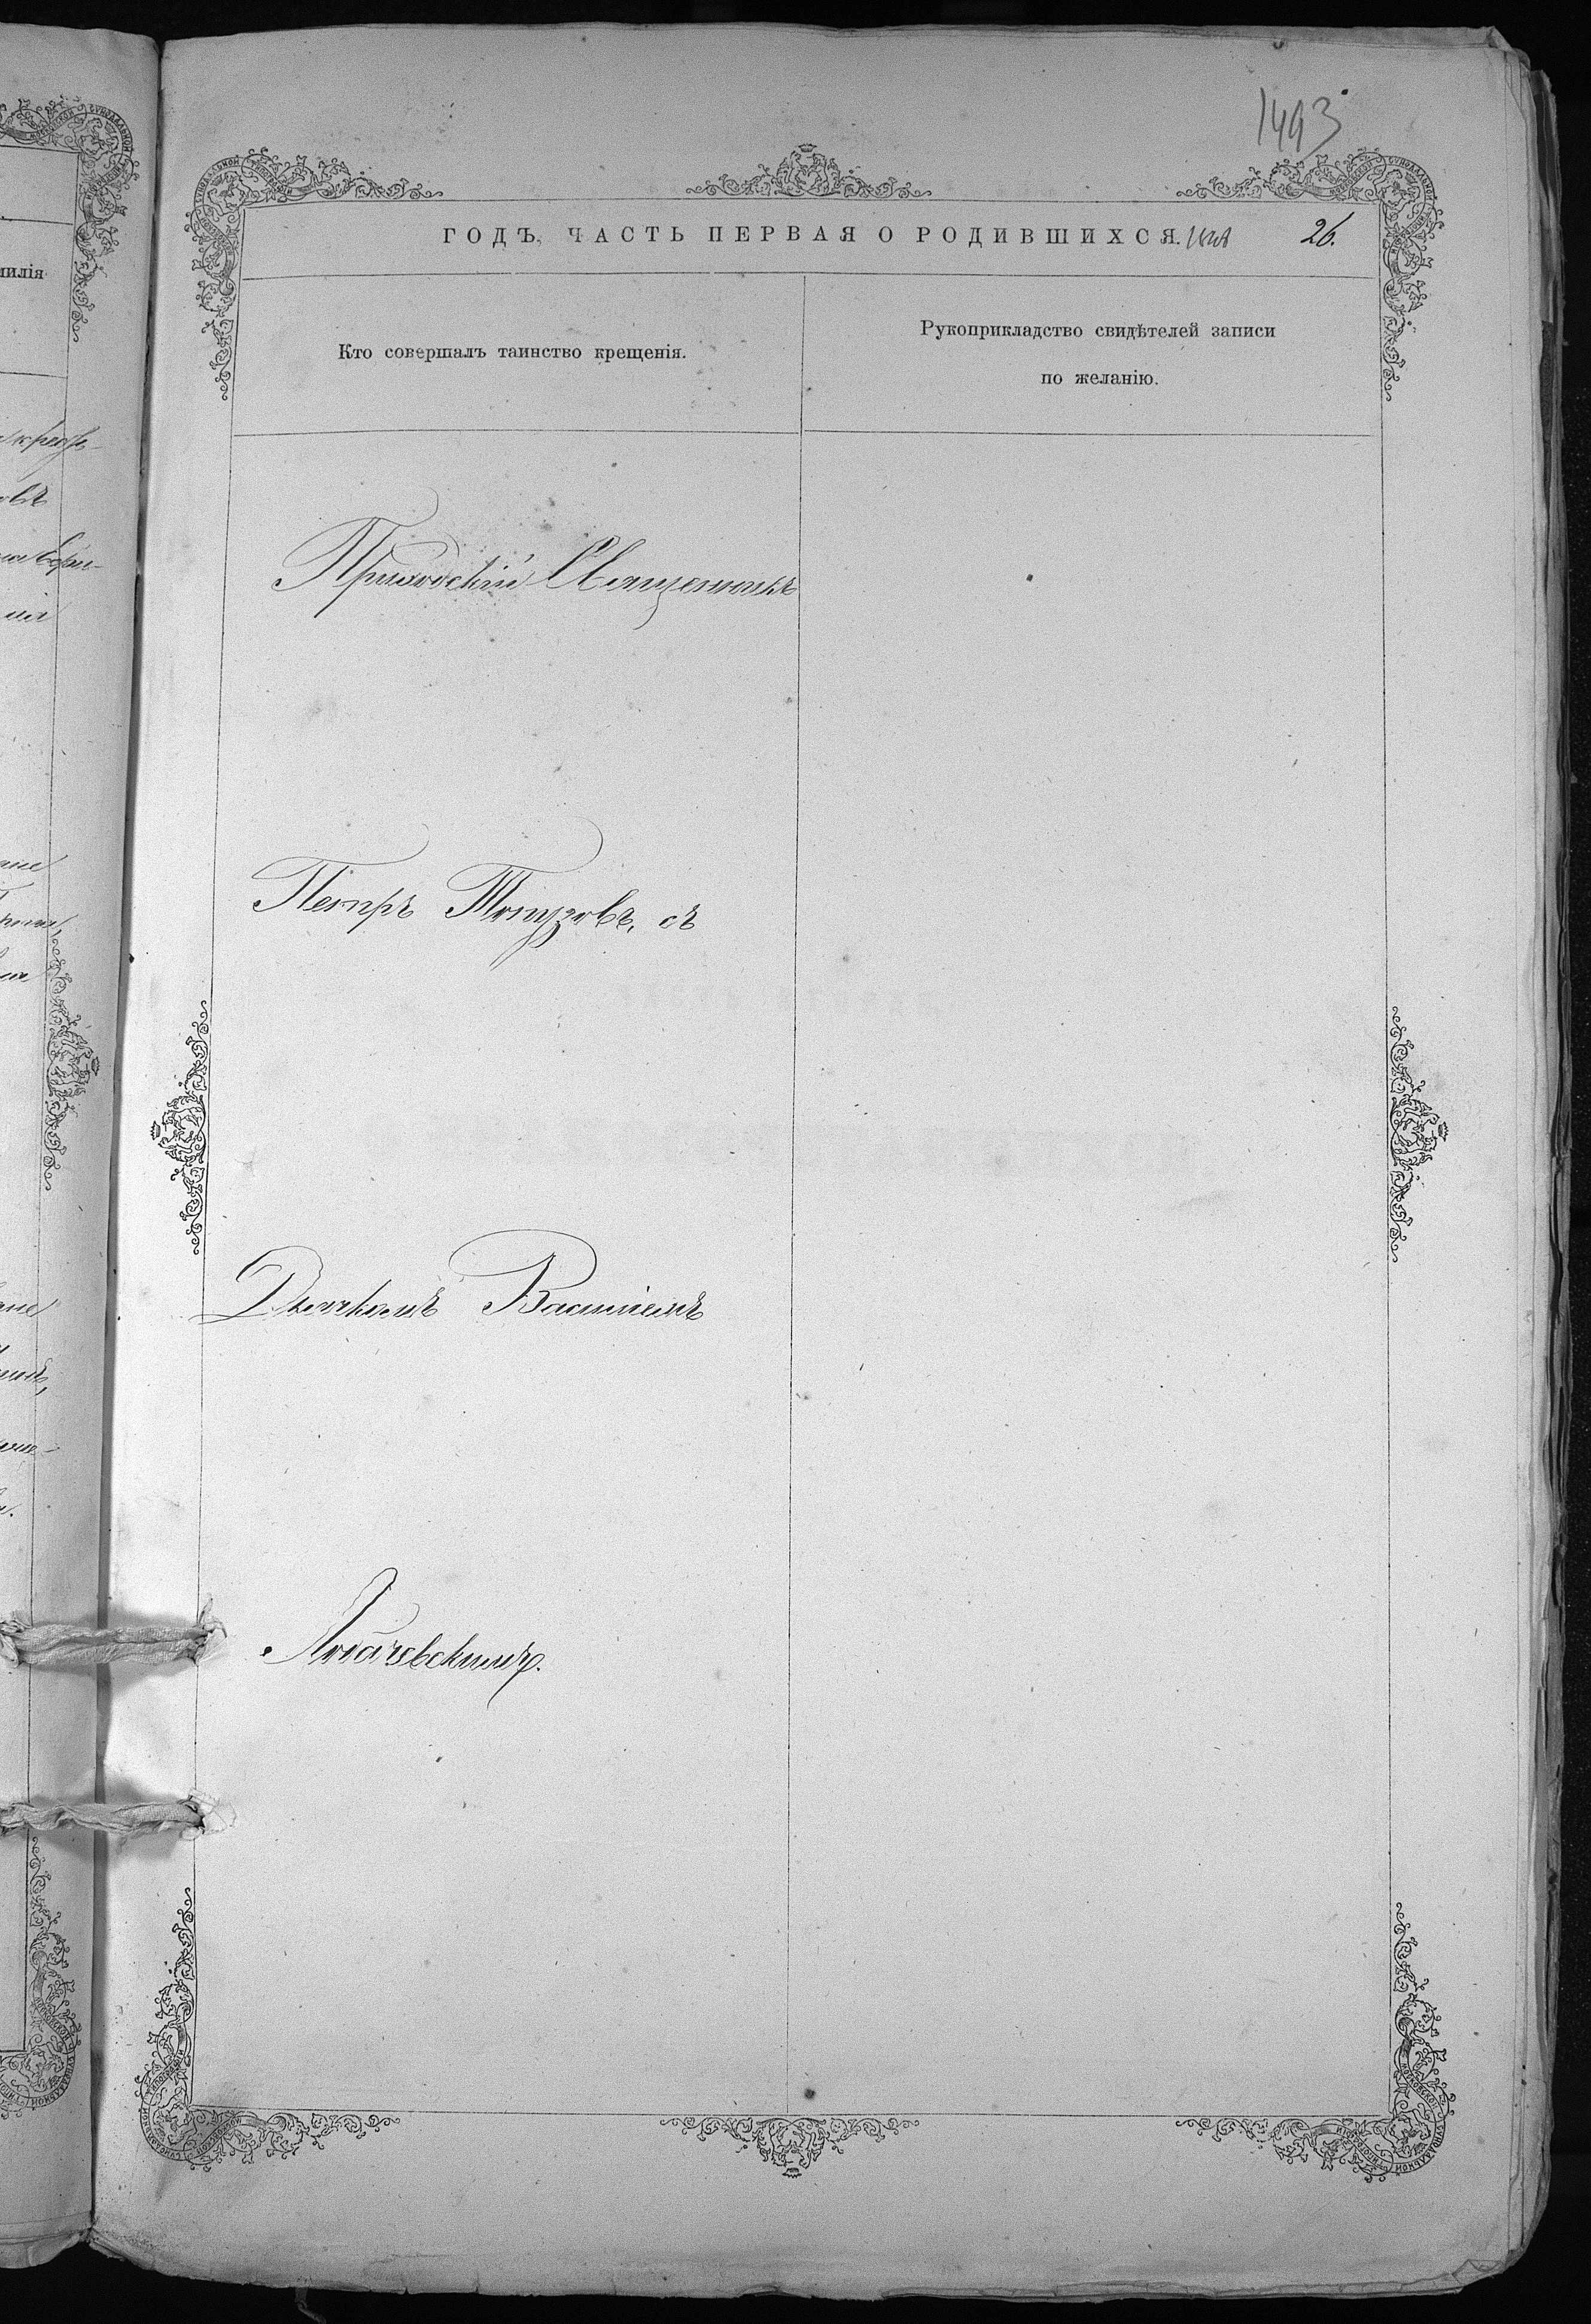 1493
ГОДЪ, ЧАСТЬ ПЕРВАЯ О РОДИВШИХСЯ.
26.
Кто совершалъ таинство крещенія.
Рукоприкладство свидѣтелей записи
по желанію.
Приходскій Священникъ
Петръ Топузовъ, съ
Дьячкомъ Василіемъ
Логачевскимъ.
илія